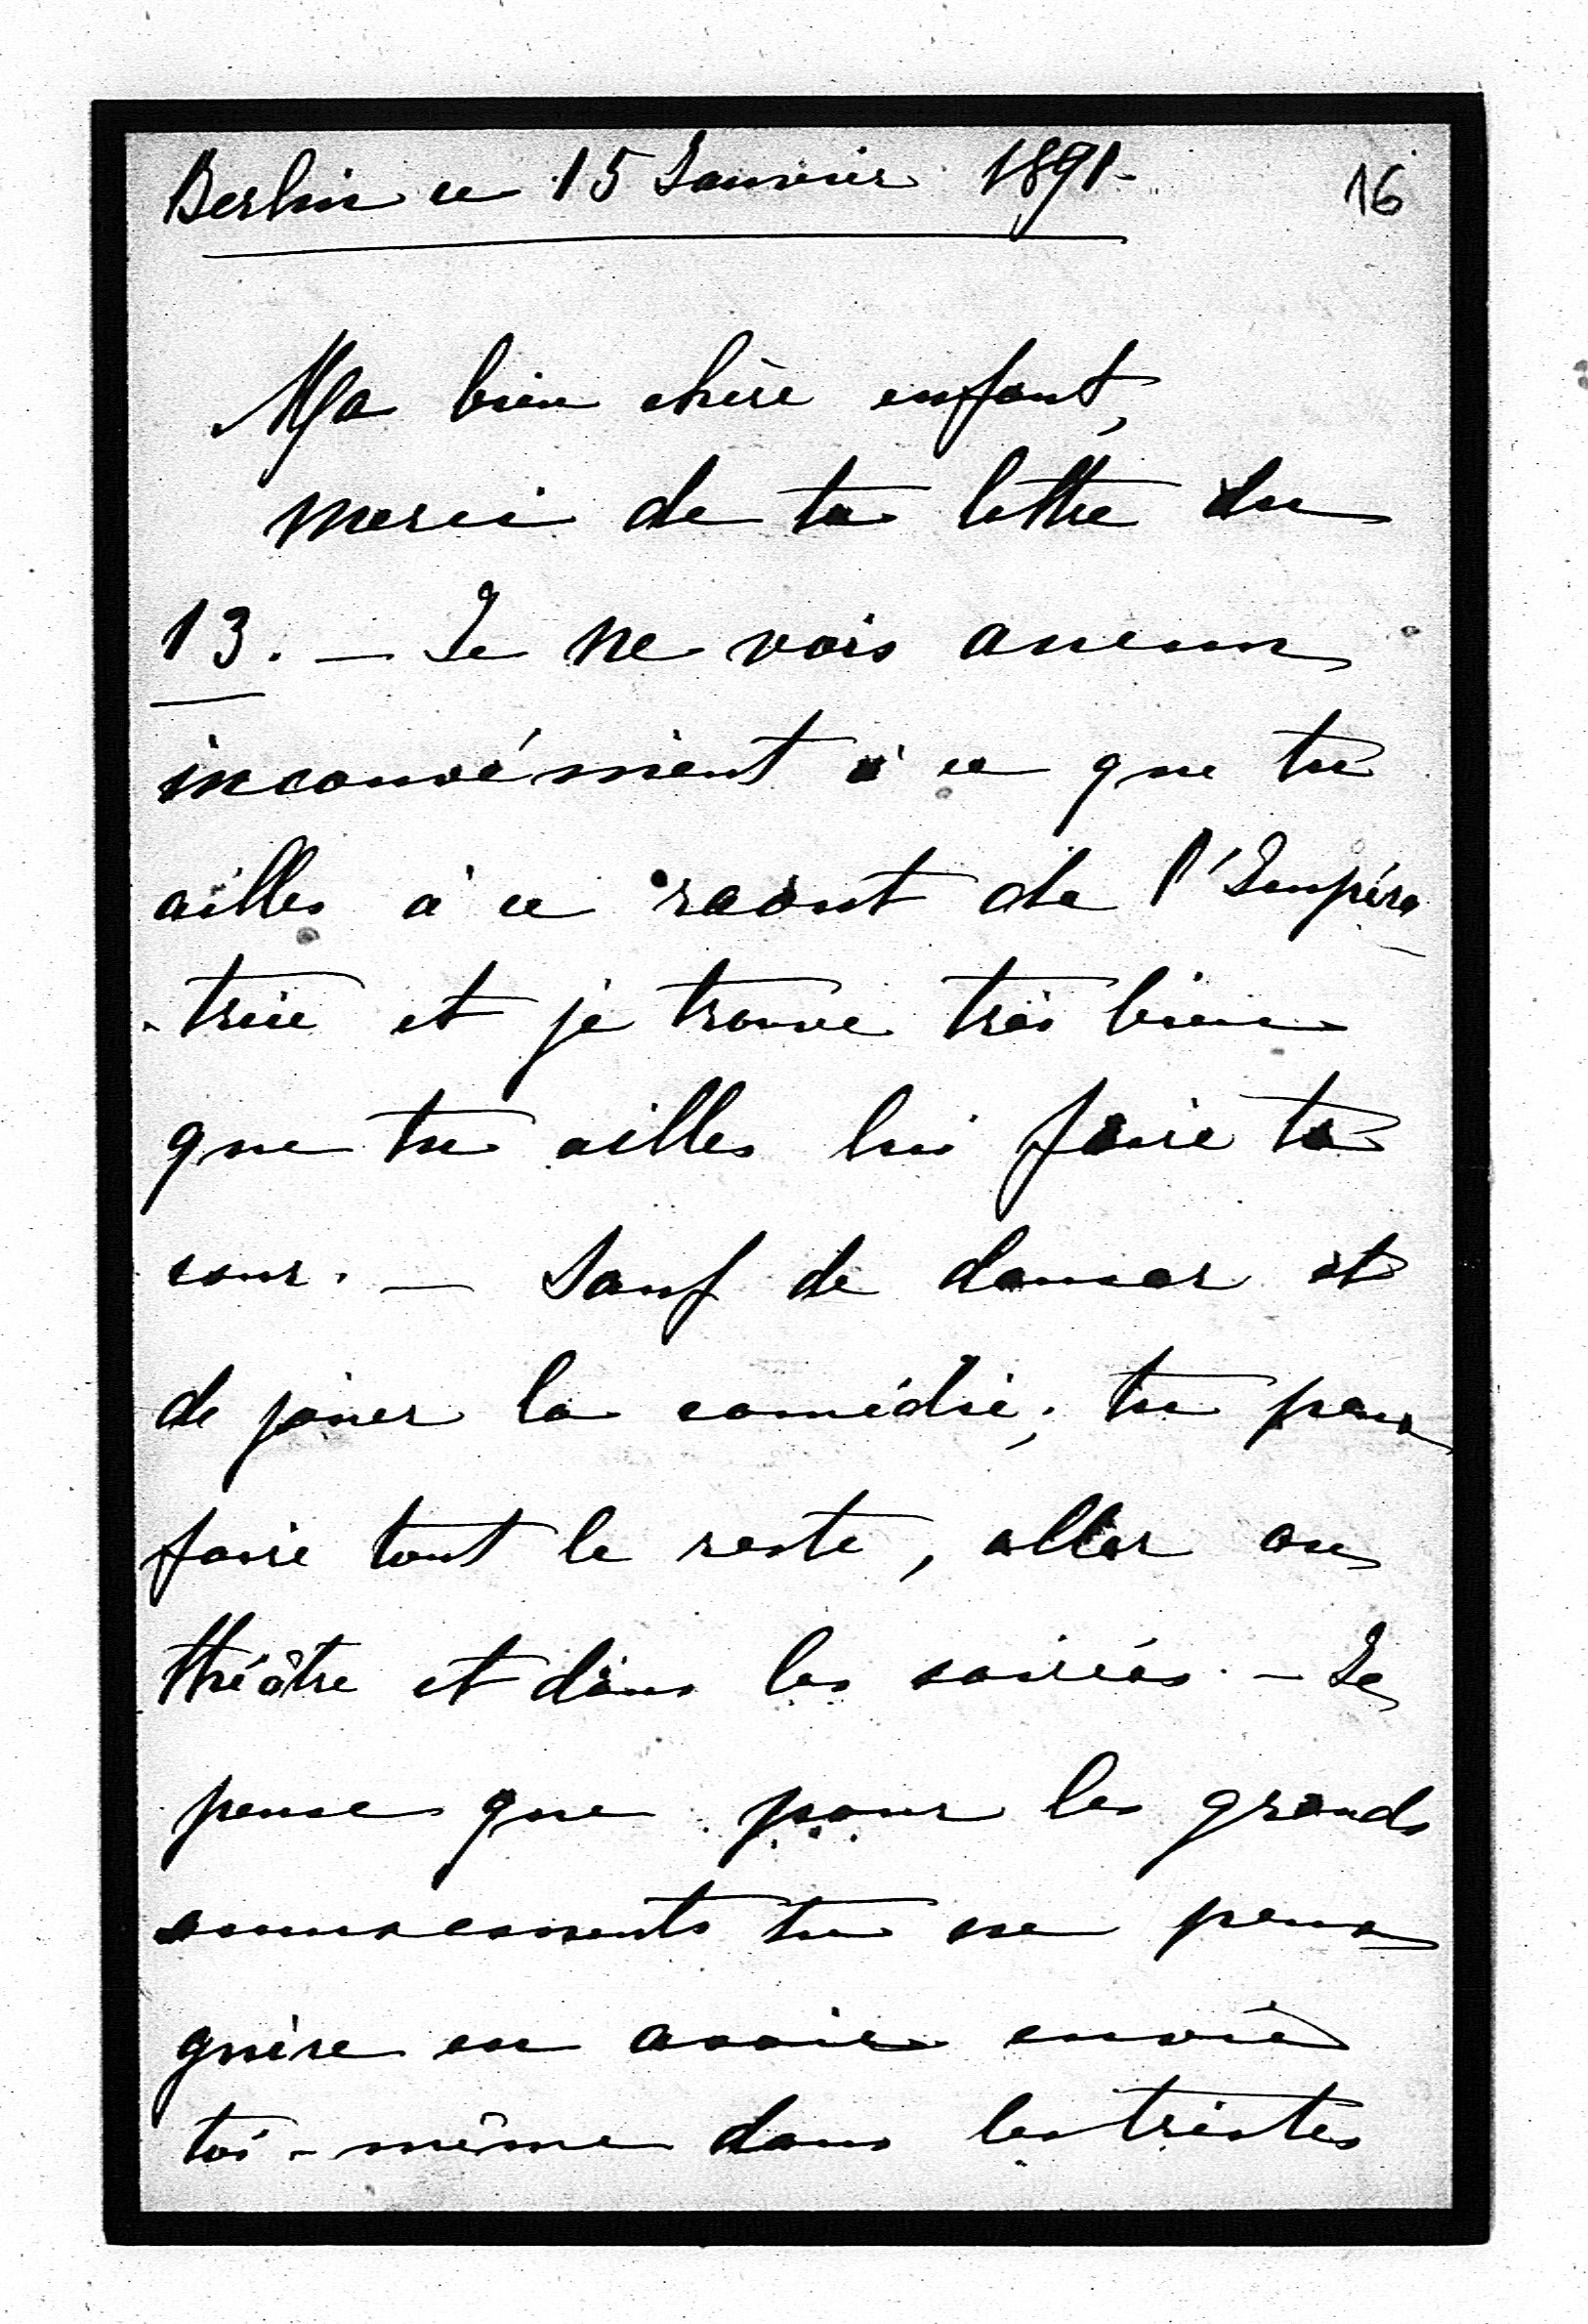 Berlin ce 15 Janvier 1891.
16
Ma bien chère enfant,
merci de ta lettre du
13. — Je ne vois aucun
inconvénient à ce que tu
ailles à ce raout de l'Impéra
-trice et je trouve très bien
que tu ailles lui faire ta
cour. — Sauf de danser et
de jouer la comédie, tu peux
faire tout le reste, aller au
théâtre et dans les soirées. — Je
pense que pour les grands
amusements tu ne peux
guère en avoir envie
toi-même dans les tristes